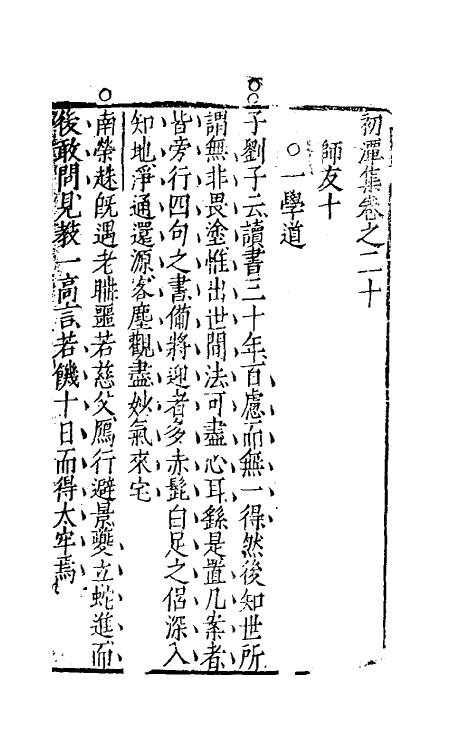 初潭集卷之二十
師友十
○一學道
子劉子云讀書三十年百慮而無一得然後知世所
謂無非畏塗惟出世間法可盡心耳繇是置几案者
皆旁行四句之書備將迎者多赤髭白足之侶深入
知地淨通還源客塵觀盡妙氣來宅
南榮趎旣遇老聃噩若慈父鴈行避景夔立蛇進而
後敢問見教一高言若饑十日而得太牢焉